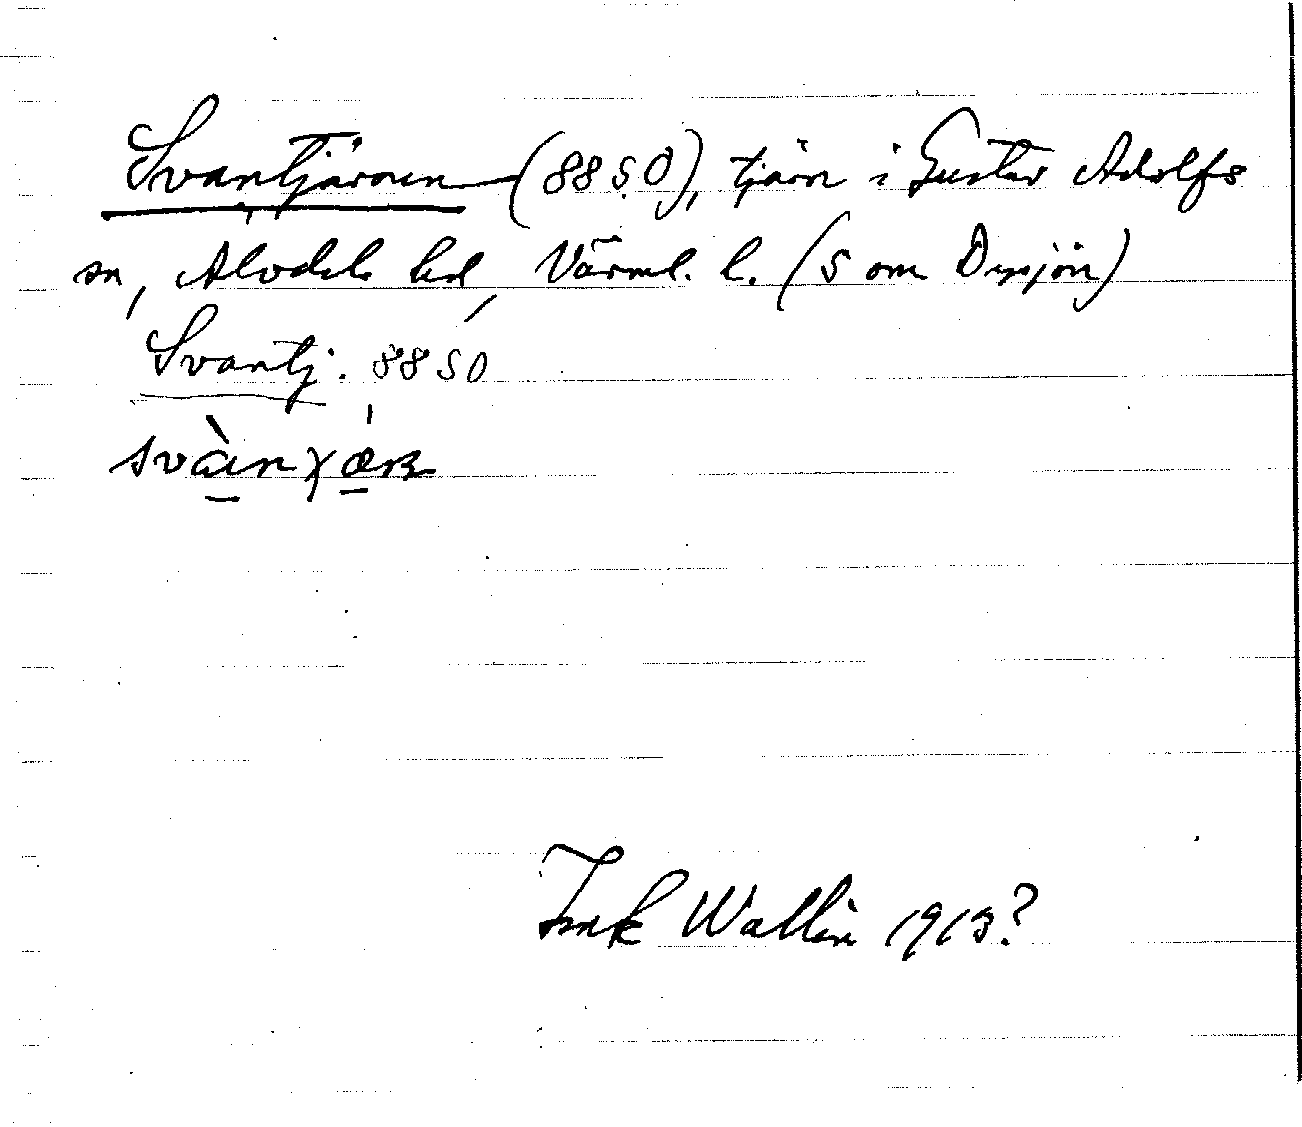 Svantjärnen (88 SO), tjärn i Gustav Adolfs
sn, Älvdals hd, Värml. l. (S om Deysjön)
Svantj. 88 SO
Wallin 1913?